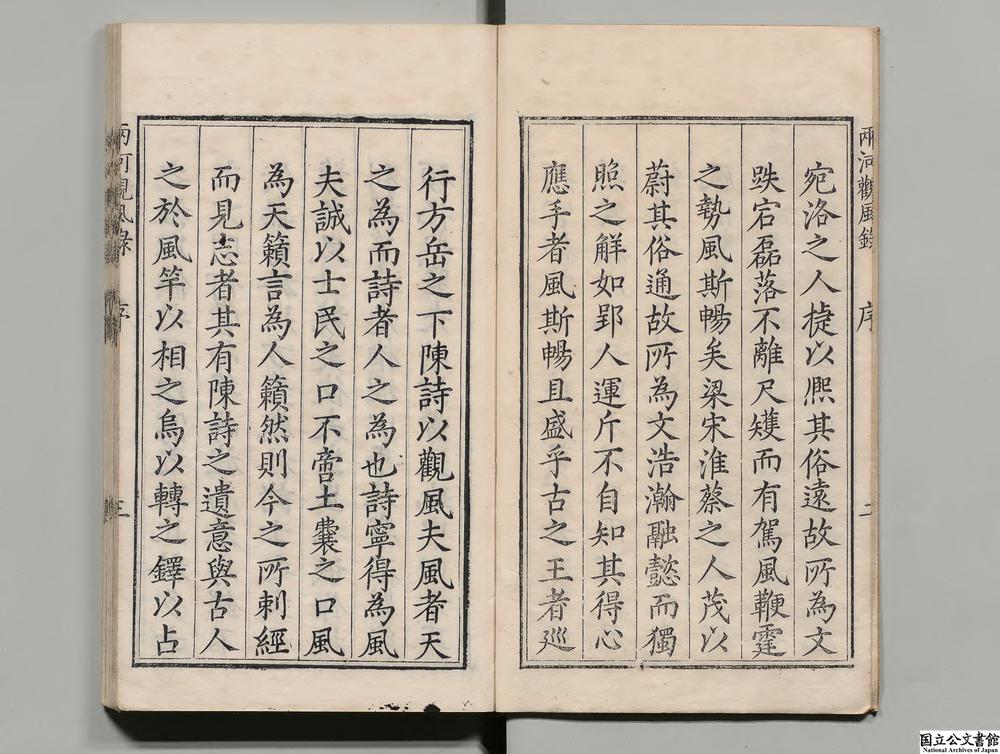 兩河觀風錄 序 二
宛洛之人捷以熈其俗遠故所為文
跌宕磊落不離尺矱而有駕風鞭霆
之勢風斯暢矣梁宋淮蔡之人茂以
蔚其俗通故所為文浩瀚融懿而獨
照之觧如郢人運斤不自知其得心
應手者風斯暢且盛乎古之王者巡
行方岳之下陳詩以觀風夫風者天
之為而詩者人之為也詩寧得為風
夫誠以士民之口不啻土囊之口風
為天籟言為人籟然則今之所剌經
而見志者其有陳詩之遺意與古人
之於風竿以相之烏以轉之鐸以占
兩河觀風錄 序 三
国立公文書館
National Archives of Japan